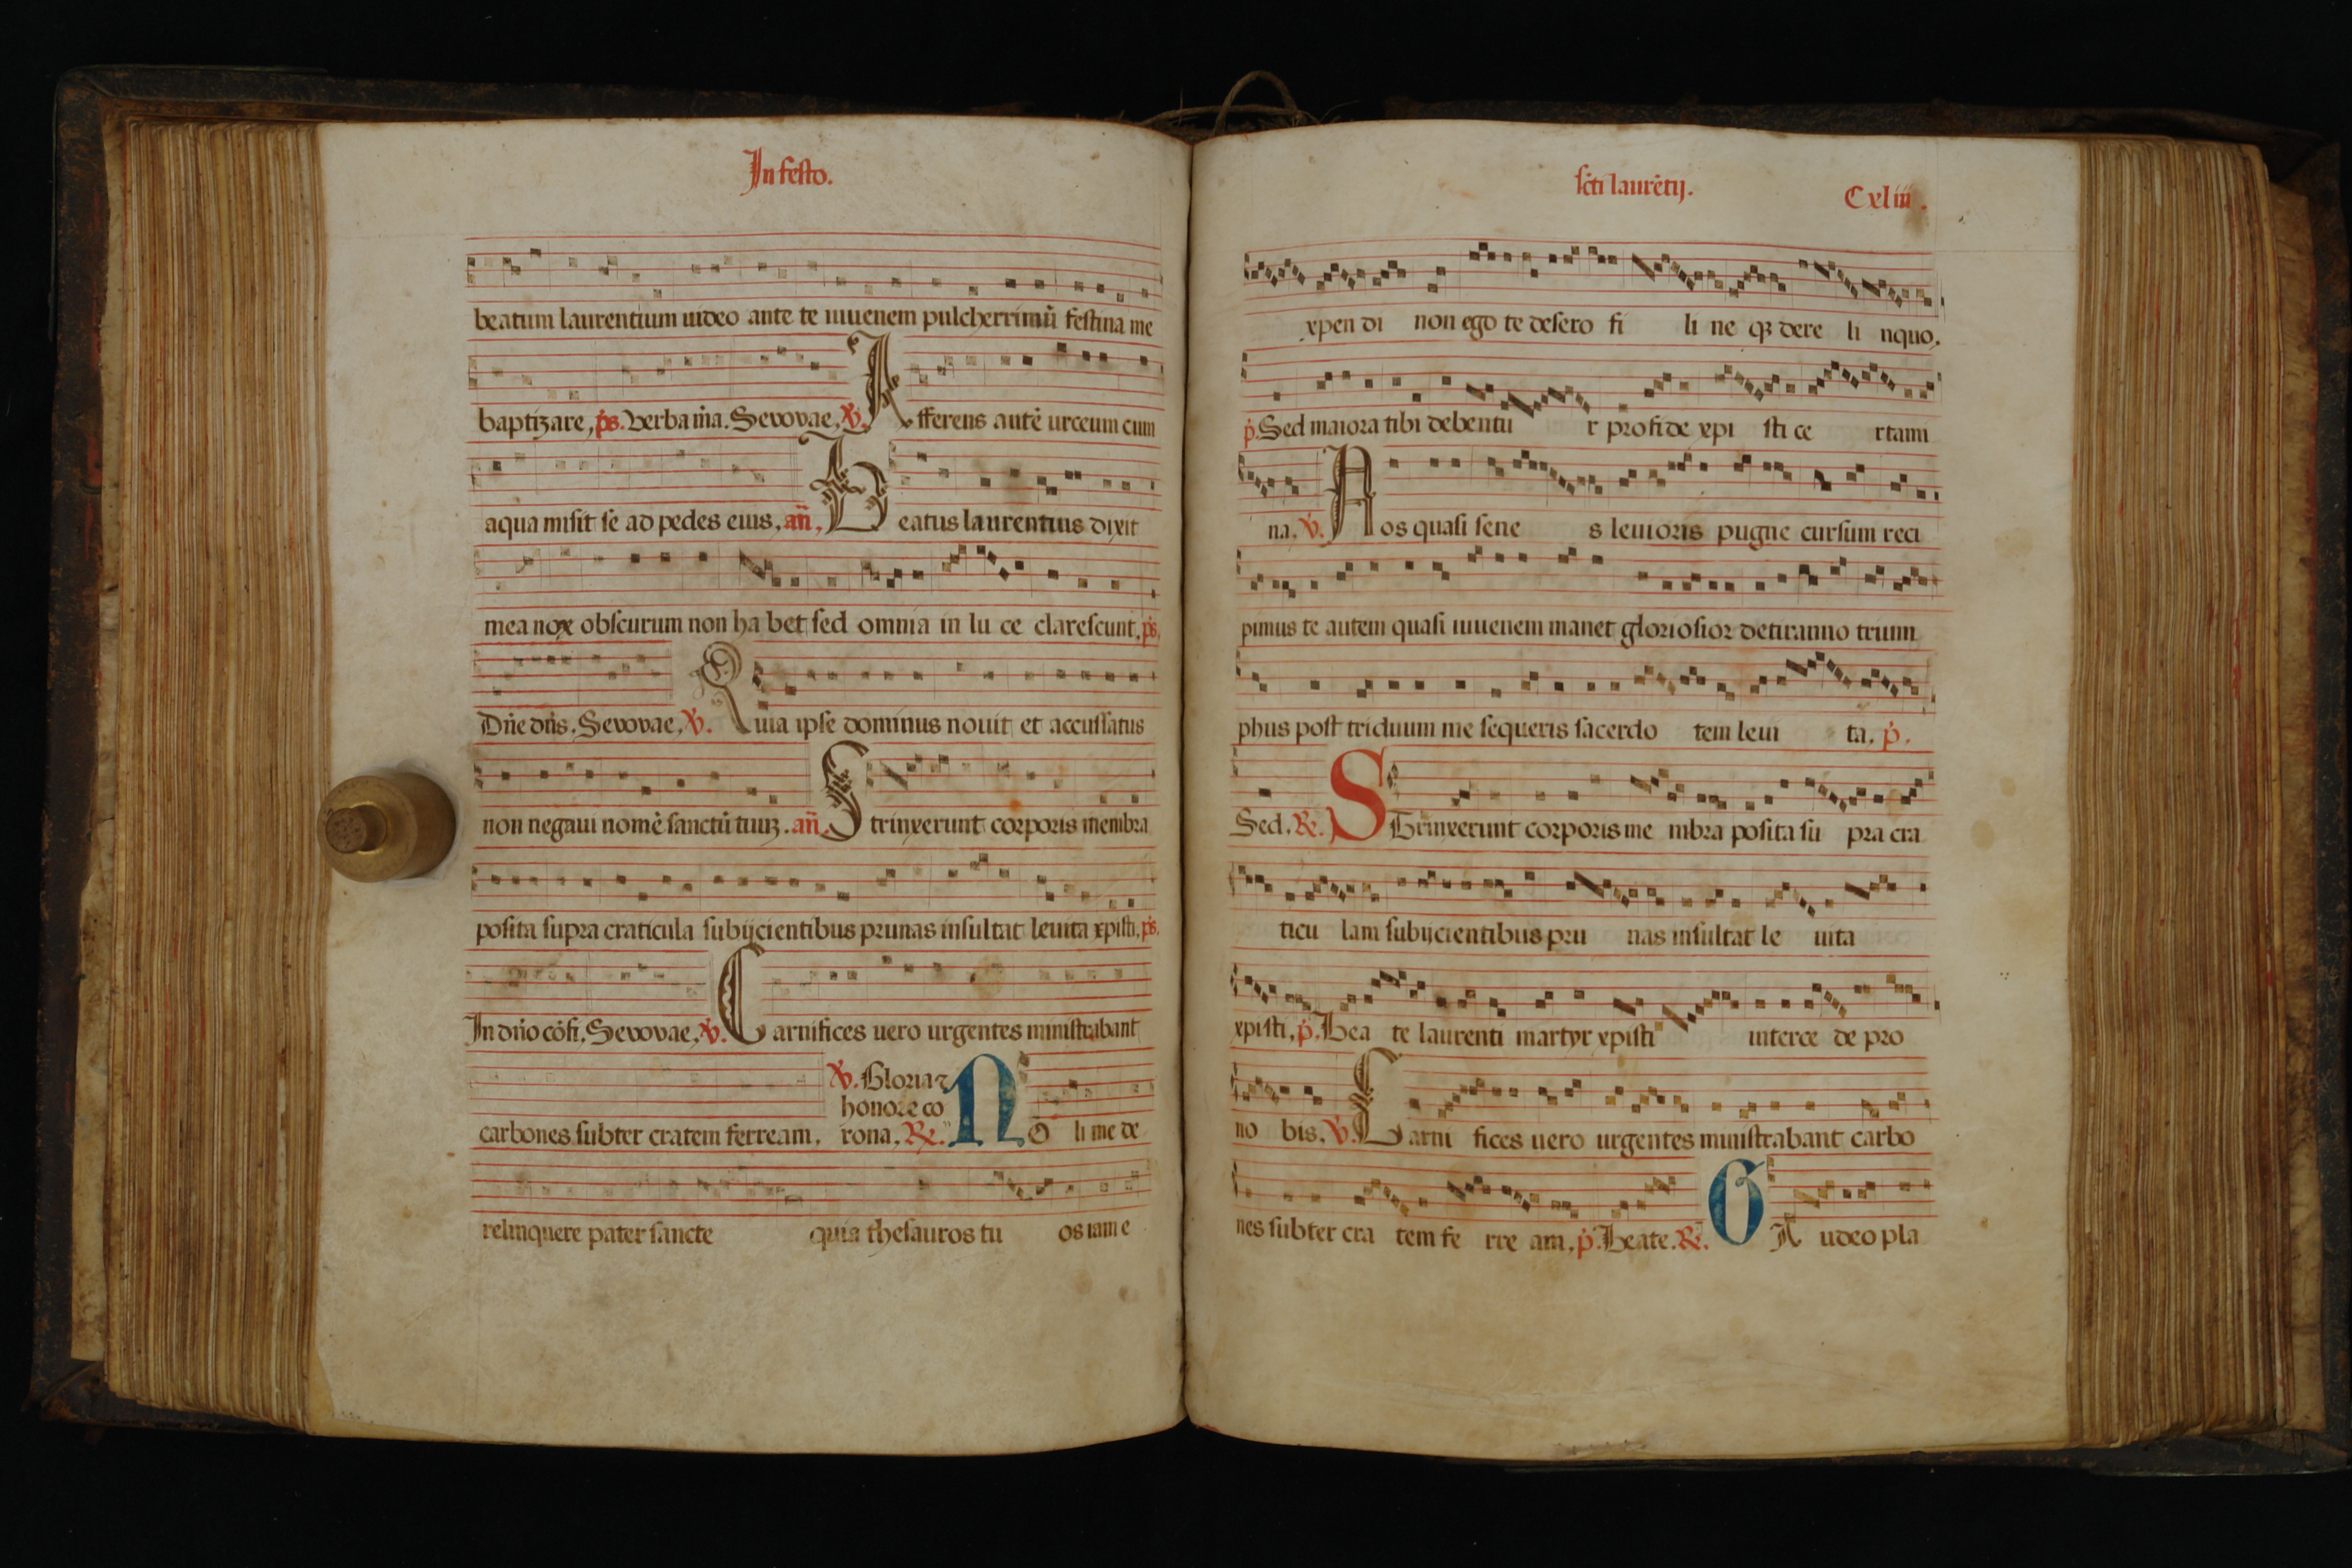 In festo.
beatum laurentium uideo ante te iuuenem pulcherrimũ festina me
baptizare, ps. Verba m̃a. Sevovae, ꝟ. Afferens autẽ urceum cum
aqua misit se ad pedes eius, añ, Beatus laurentius dixit
mea nox obscurum non ha bet sed omnia in lu ce clarescunt, ps,
Dñe dñs, Sevovae, ꝟ. Quia ipse dominus nouit et accussatus
non negaui nomẽ sanctũ tuuꝫ. añ. Strinxerunt corporis membra
posita supra craticula subijcientibus prunas insultat leuita xpisti, ps.
In dño cõfi, Sevovae, ꝟ. Carnifices uero urgentes ministrabant
ꝟ. Gloria ⁊
honore co
carbones subter cratem ferream, rona, ℞. NO li me de
relinquere pater sancte quia thesauros tu os iam e
scti laurẽtij.
Cxliii.
xpen di non ego te desero fi li ne qꝫ dere li nquo,
p̃. Sed maiora tibi debentu r pro fide xpi sti ce rtami
na, ꝟ. Nos quasi sene s leuioris pugne cursum reci
pimus te autem quasi iuuenem manet gloriosior de tiranno trium
phus post triduum me sequeris sacerdo tem leui ta, p̃.
Sed, ℞. STrinxerunt corporis me mbra posita su pra cra
ticu lam subijcientibus pru nas insultat le uita
xpisti, p̃. Bea te laurenti martyr xpisti interce de pro
no bis, ꝟ. Carni fices uero urgentes ministrabant carbo
nes subter cra tem fe rre am, p̃. Beate. ℞. GA udeo pla